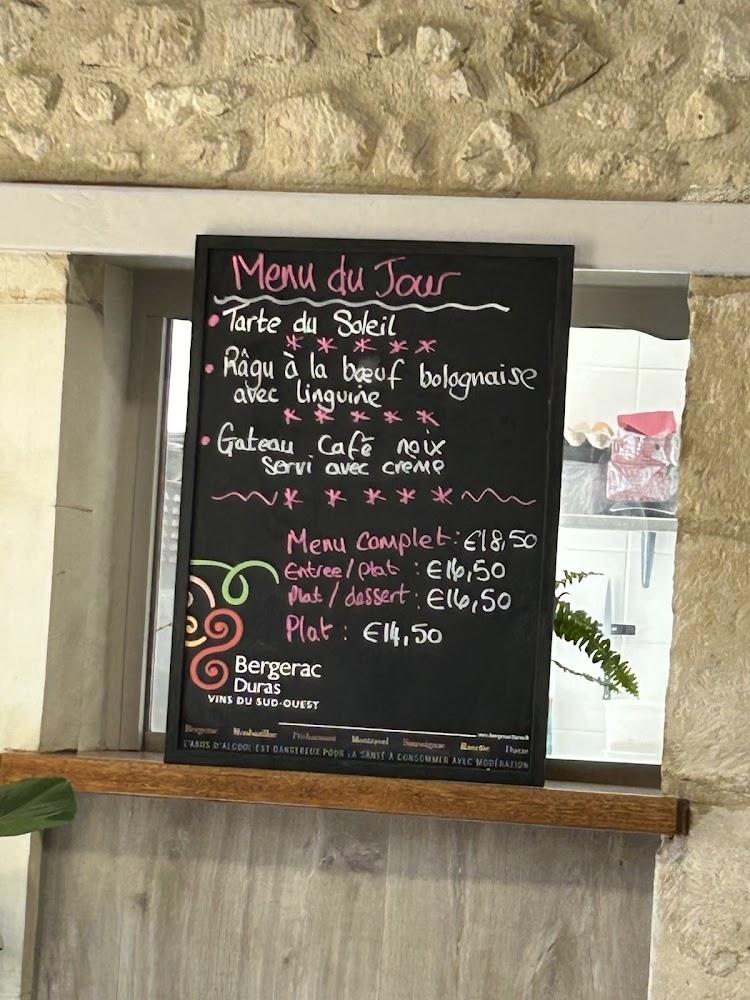 Menu du Jour
• Tarte du Soleil
* * * * *
• Râgu à la bœuf bolognaise
avec linguine
* * * * *
• Gateau Café noix
Servi avec crème
* * * * *
Menu Complet : €18,50
Entree / plat : €16,50
Plat / dessert : €16,50
Plat : €14,50
Bergerac
Duras
VINS DU SUD-OUEST
Bergerac Monbazillac Pécharmant Montravel Saussignac Rosette Duras
L'ABUS D'ALCOOL EST DANGEREUX POUR LA SANTÉ À CONSOMMER AVEC MODÉRATION